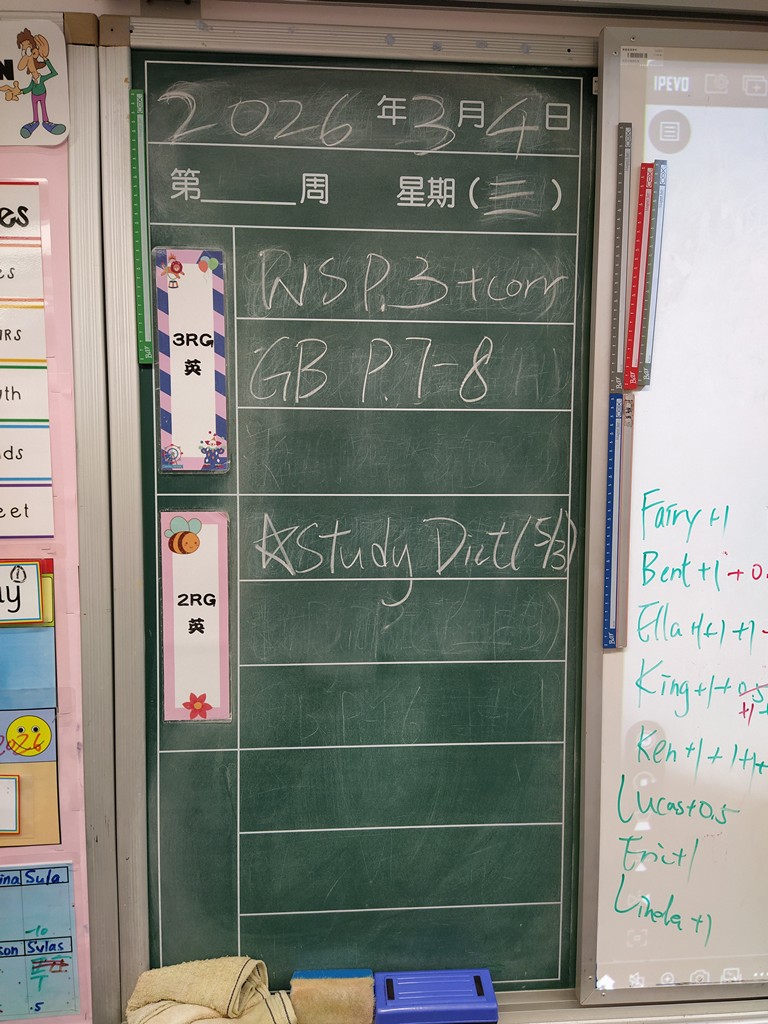 2026年3月4日
第______周 星期(三)
3RG
英
WS P.3 +corr
GB P.7-8
2RG
英
☆Study Dict(5/3)
IPEVO
Fairy +1
Bent +1 +0.
Ella +1 +1 +1
King +1 + 0.5
+1 +
Ken +1 +1 +1+
Lucas +0.5
Eric +1
Linda +1
N
es
es
ars
uth
ds
eet
ay
2026
ina Sula
-10
son Sylas
.5